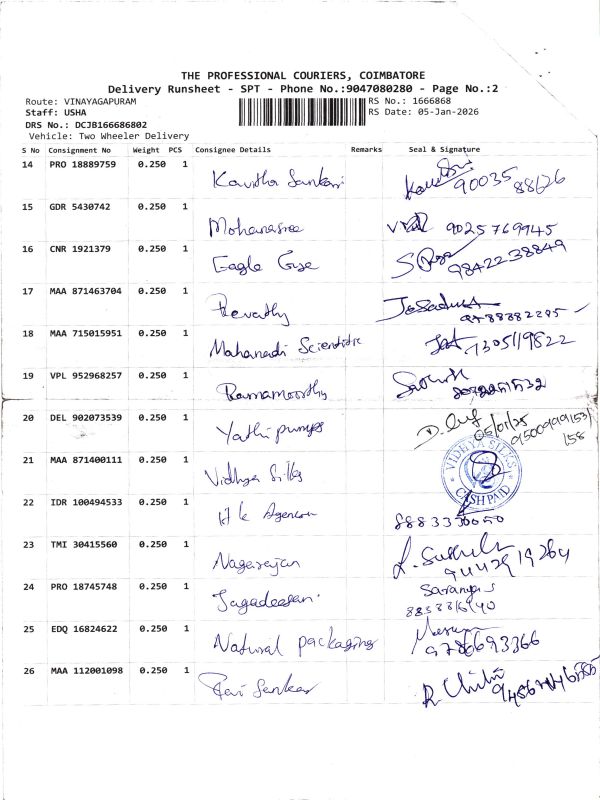 THE PROFESSIONAL COURIERS, COIMBATORE
Delivery Runsheet - SPT - Phone No.:9047080280 - Page No.:2
Route: VINAYAGAPURAM
RS No.: 1666868
Staff: USHA
RS Date: 05-Jan-2026
DRS No.: DCJB166686802
Vehicle: Two Wheeler Delivery
S No Consignment No Weight PCS Consignee Details Remarks Seal & Signature
14 PRO 18889759 0.250 1 Kavitha Sankari 90035 88126
15 GDR 5430742 0.250 1 Mohanasree 9025769945
16 CNR 1921379 0.250 1 Eagle Eye 9842238849
17 MAA 871463704 0.250 1 Revathy
18 MAA 715015951 0.250 1 Mahanadi Scientific 7305119822
19 VPL 952968257 0.250 1 Ramamoorthy Sathish
20 DEL 902073539 0.250 1 Yathi pumps 05/01/25 9500999153/
158
21 MAA 871400111 0.250 1 Vidhya Silks VIDHYA SILKS CASH PAID
22 IDR 100494533 0.250 1
23 TMI 30415560 0.250 1 Nagarajan
24 PRO 18745748 0.250 1 Jagadeesan. Saranya S
25 EDQ 16824622 0.250 1 Natural packaging 9786693366
26 MAA 112001098 0.250 1 Ravi Sankar